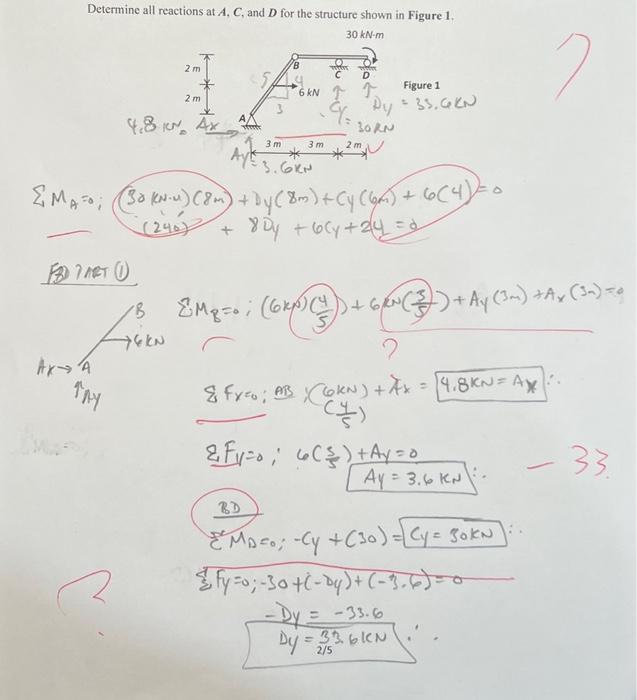 Determine all reactions at A, C, and D for the structure shown in Figure 1.
30 kN·m
2 m
B
C
D
5
4
3
6 kN
Figure 1
2 m
A
Cy = 30 KN
Dy = 33.6 KN
4.8 KN Ax
3 m 3 m 2 m
Ay = 3.6 KN
ΣMA=0; (30 KN-M)(8m) + Dy(8m) + Cy(6m) + 6(4) = 0
(240) + 8Dy + 6Cy + 24 = 0
FBD PART ①
B
6KN
Ax → A
↑Ay
ΣMB=0; (6KN)(4/5) + 6KN(3/5) + Ay(3m) + Ax(3m) = 0
?
ΣFx=0; AB; (6KN)(4/5) + Ax = 4.8KN = Ax ∴
ΣFy=0; 6(3/5) + Ay = 0
Ay = 3.6 KN ∴
- 33
BD
ΣMD=0; -Cy + (30) = Cy = 30KN ∴
ΣFy=0; -30 + (-Dy) + (-3.6) = 0
-Dy = -33.6
Dy = 33.6KN ∴
2/5